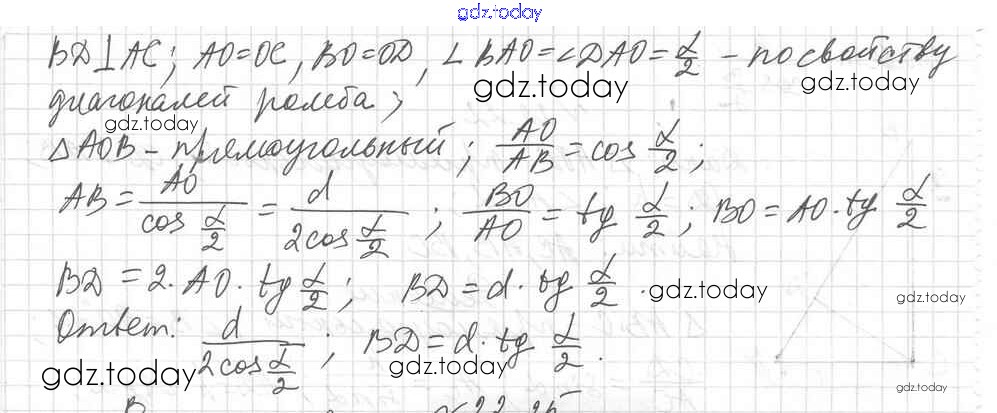 gdz.today
BD⊥AC; AO=OC, BO=OD, ∠BAO=∠DAO=α/2 – по свойству
gdz.today gdz.today
диагоналей ромба;
gdz.today
ΔAOB – прямоугольный; AO/AB = cos α/2;
AB = AO/(cos α/2) = d/(2cos α/2); BO/AO = tg α/2; BO = AO·tg α/2
BD = 2·AO·tg α/2; BD = d·tg α/2.
gdz.today gdz.today
Ответ: d/(2cos α/2); BD = d·tg α/2.
gdz.today gdz.today gdz.today